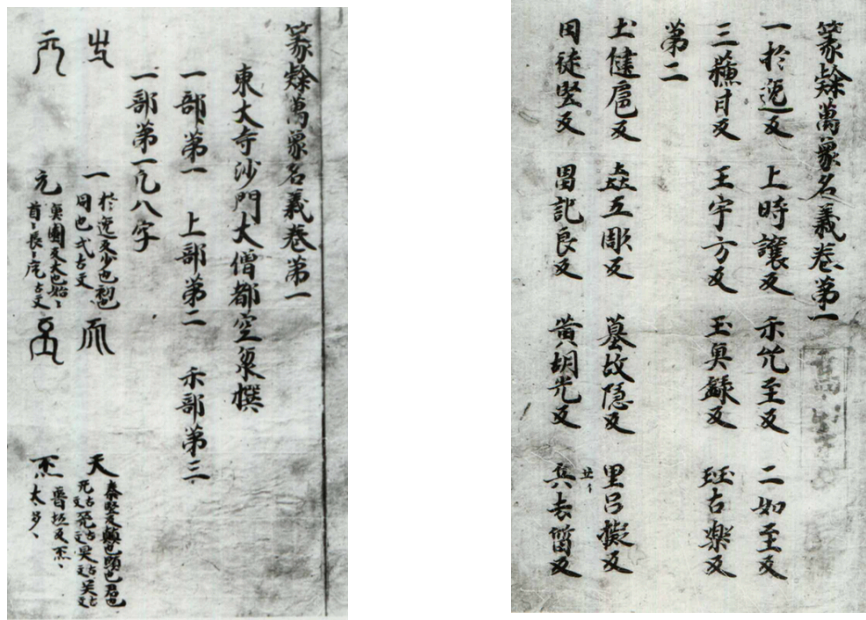 篆隷萬象名義卷第一
一於逸反 上時讓反 示 至反 二如至反
三蘓甘反 王宇方反 玉魚録反 珏古樂反
第二
土 扈反 垚五彫反 堇故隱反 里呂擬反
田徒堅反 畕記良反 黄胡光反 丘去留反
篆隷萬象名義卷第一
東大寺沙門大僧都空海撰
一部第一 上部第二 示部第三
一部第一凡八字
一 於逸反少也初也同也弌古文 天 泰堅反顛也頭也君也
元 魚園反大也始、首、長、古文 丕 普坯反丕、太多、